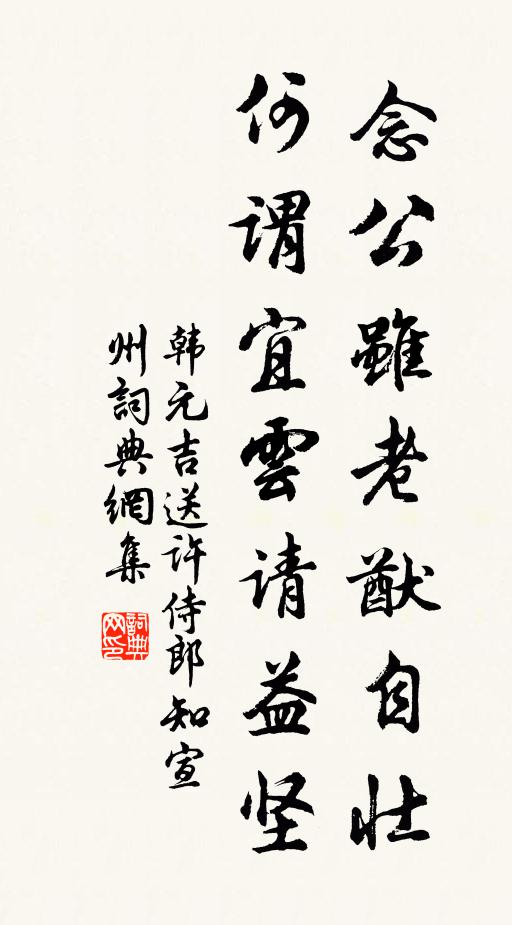 念公雖老猷自壮
何谓宜雲请益坚
韩元吉送许侍郎知宣
州詞典網集
詞典网印